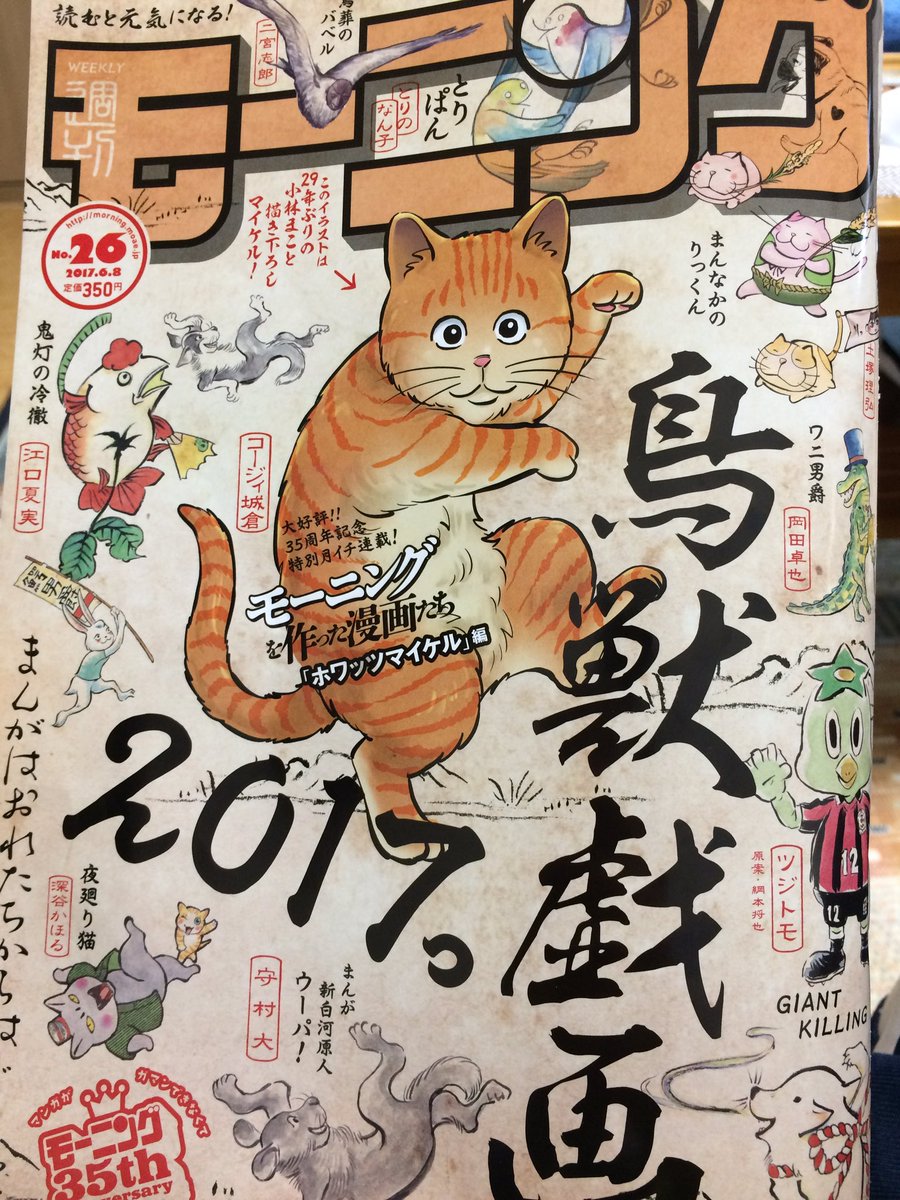 読むと元気になる!
モーニング
WEEKLY
週刊
鳥葬のバベル
二宮志郎
とりぱん
とりのなん子
http://morning.moae.jp
No.26
2017.6.8
定価350円
このイラストは
29年ぶりの
小林まこと
描き下ろし
マイケル!
まんなかの
りっくん
土塚理弘
鬼灯の冷徹
江口夏実
コージィ城倉
ワニ男爵
岡田卓也
大好評!!
35周年記念
特別月イチ連載!
モーニング
を作った漫画たち
「ホワッツマイケル」編
鳥獣戯画
2017。
ツジトモ
原案・綱本将也
12
12
GIANT
KILLING
まんがはおれたちからは
夜廻り猫
深谷かほる
まんが
新白河原人
ウーパ!
守村大
マンガがガマンできなくて
モーニング
35th